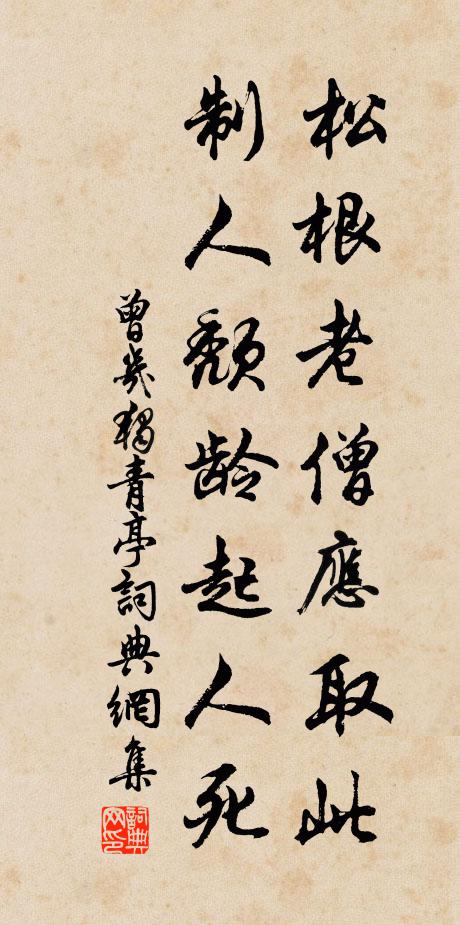 松根老僧應取此
制人頹齡起人死
曾幾獨青亭詞典網集
詞典網印